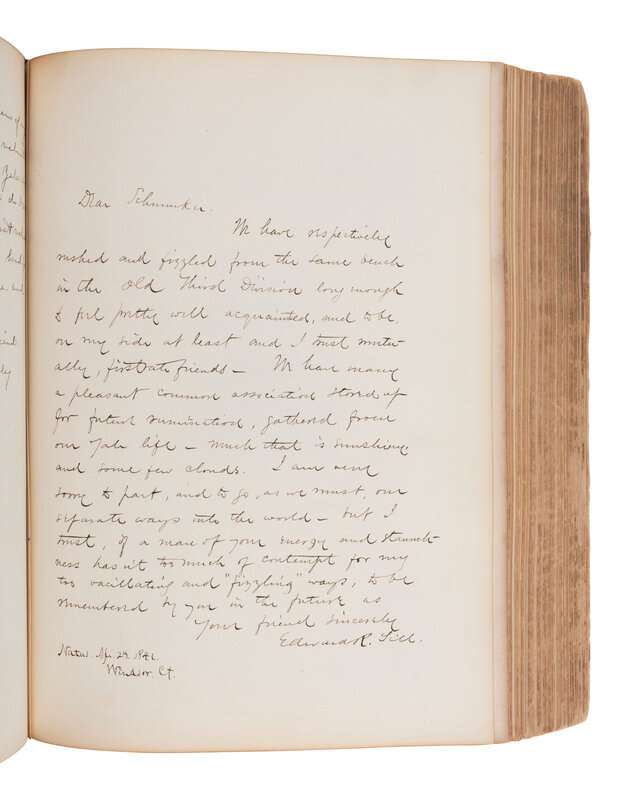 Dear Schumaker.
We have respectively
rushed and fizzled from the same bench
in the Old Third Division long enough
to feel pretty well acquainted, and to be,
on my side at least and I trust mutu-
ally, first rate friends – We have many
a pleasant common association stored up
for future rumination, gathered from
our Yale life – much that is sunshiny
and some few clouds. I am very
sorry to part, and to go, as we must, our
separate ways into the world – but I
trust, if a man of your energy and staunch-
ness has n't too much of contempt for my
too vacillating and "fizzling" ways, to be
remembered by you in the future as
Your friend sincerely
Edward R. Sill.
Natus. Apr. 29. 1841.
Windsor. Ct.